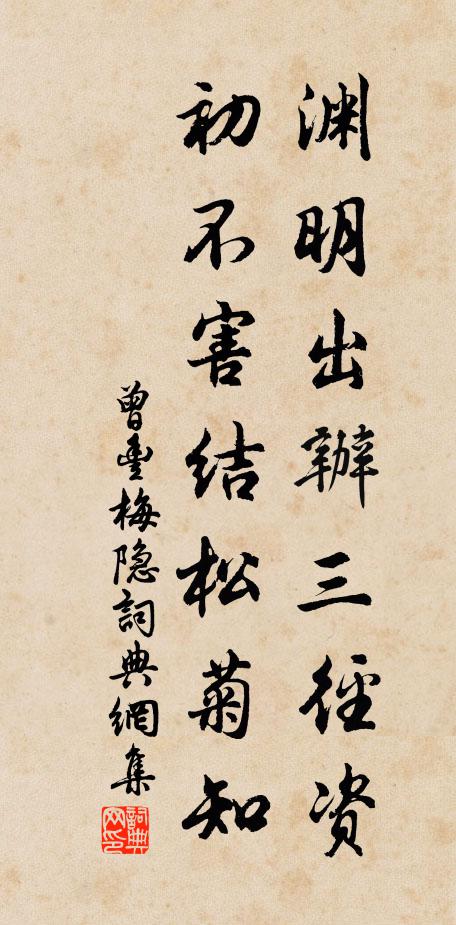 渊明出辦三径资
初不害结松菊知
曾豊梅隐詞典網集
詞典网印